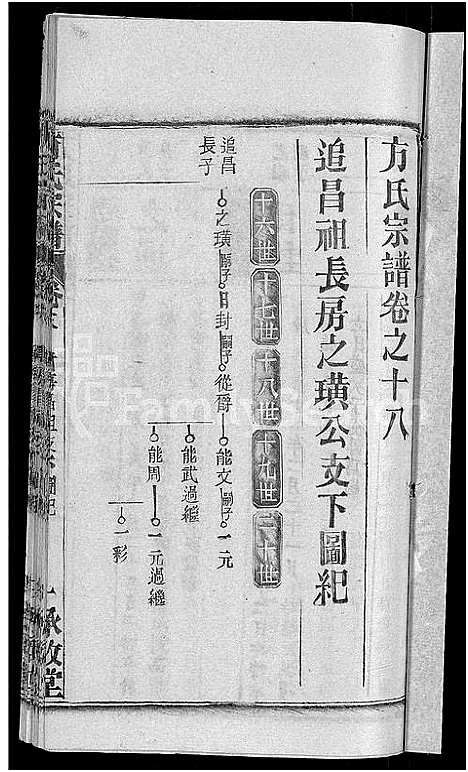 方氏宗譜卷之十八
追昌祖長房之璜公支下圖紀
十六世 十七世 十八世 十九世 二十世
追昌長子 之璜 嗣子 日封 嗣子 從爵 能文 嗣子 一元
能武過繼
能周 一元過繼
一彩
方氏宗譜
承啟堂